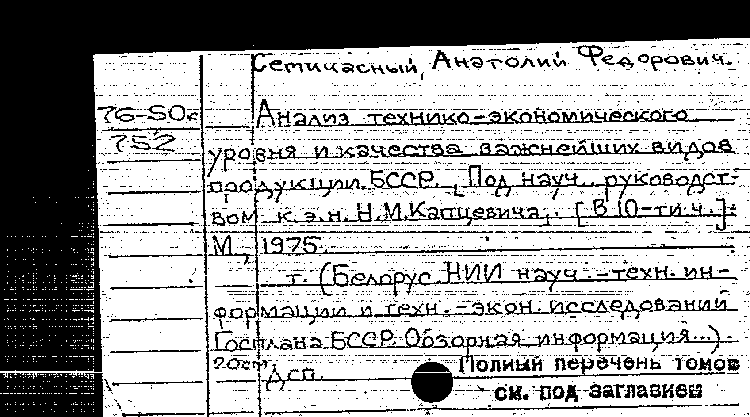 Семичасный, Анатолий Федорович.
76-50к
752
Анализ технико-экономического
уровня и качества важнейших видов
продукции БССР. [Под науч. руководст-
вом к.э.н. Н.М.Капцевича]. [В 10-ти ч.].
М., 1975.
т. (Белорус. НИИ науч.-техн. ин-
формации и техн.-экон. исследований
Госплана БССР. Обзорная информация...).
20см.
Дсп.
Полный перечень томов
см. под заглавием